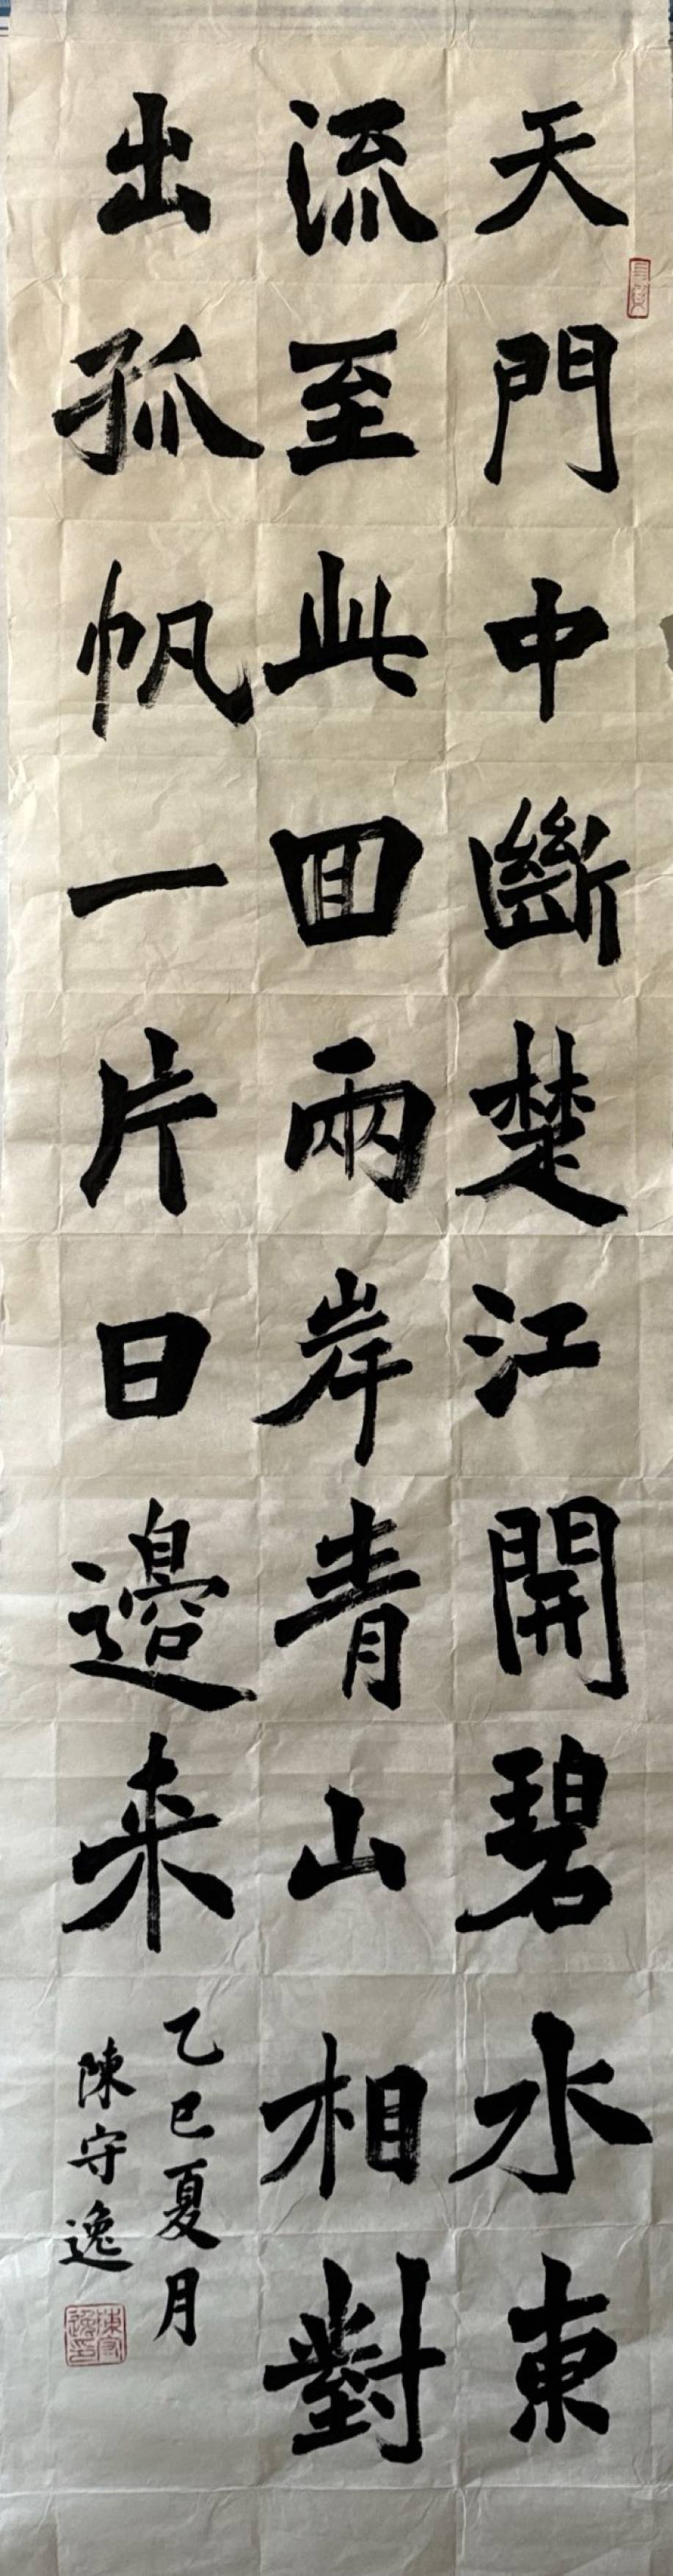 天門中斷楚江開碧水東
流至此回兩岸青山相對
出孤帆一片日邊来
乙巳夏月
陳守逸